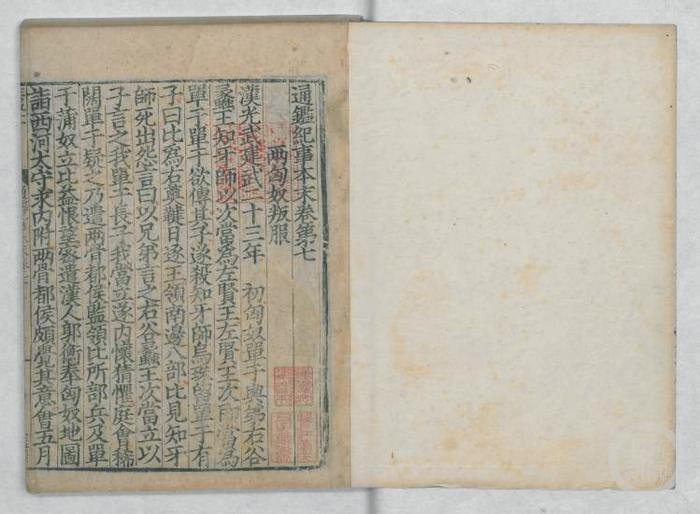 通鑑紀事本末卷第七
兩匈奴叛服
漢光武建武二十三年　初匈奴單于輿弟右谷
蠡王知牙師以次當爲左賢王左賢王次即當爲
單于單于欲傳其子遂殺知牙師烏珠留單于有
子曰比爲右薁鞬日逐王領南邊八部比見知牙
師死出怨言曰以兄弟言之右谷蠡王次當立以
子言之我單于長子我當立遂内懷猜懼庭會稀
闊單于疑之乃遣兩骨都侯監領比所部兵及單
于蒲奴立比益恨望密遣漢人郭衡奉匈奴地圖
詣西河太守求内附兩骨都侯頗覺其意會五月